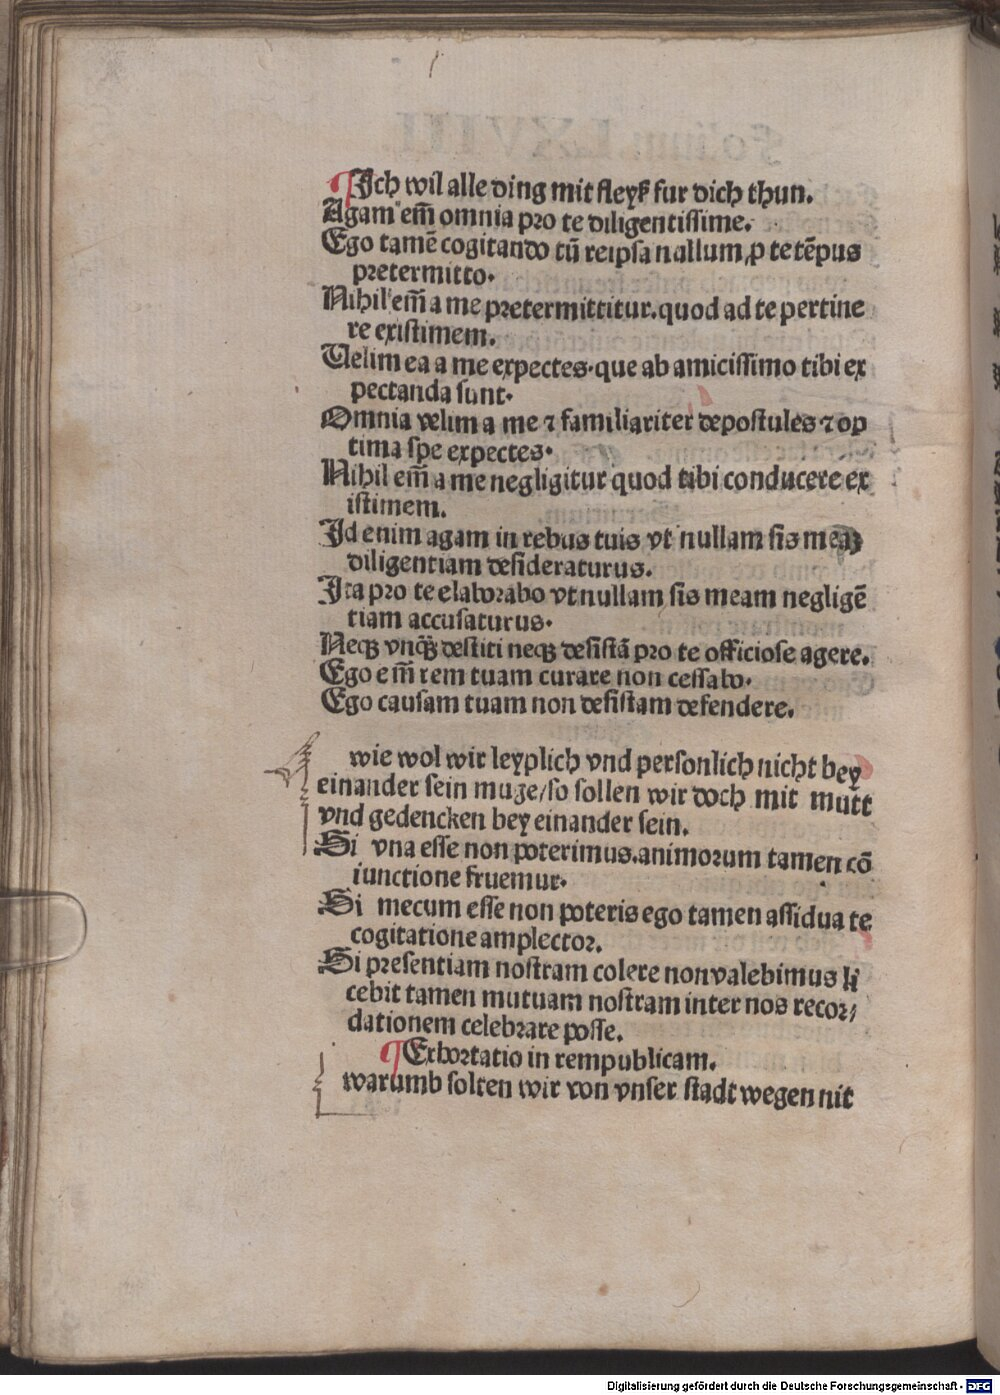 ¶Ich wil alle ding mit fleyß fur dich thun.
Agam em̅ omnia pro te diligentissime.
Ego tamē cogitando tū reipsa nallum ꝓ te tēpus
pretermitto.
Nihil em̅ a me pretermittitur.quod ad te pertine
re existimem.
Uelim ea a me expectes.que ab amicissimo tibi ex
pectanda sunt.
Omnia velim a me ⁊ familiariter depostules ⁊ op
tima spe expectes.
Nihil em̅ a me negligitur quod tibi conducere ex
istimem.
Id enim agam in rebus tuis vt nullam sis meaꝫ
diligentiam desideraturus.
Ita pro te elaborabo vt nullam sis meam negligē
tiam accusaturus.
Neqꝫ vnqꝫ̄ destiti neqꝫ desistā pro te officiose agere.
Ego em̅ rem tuam curare non cessabo.
Ego causam tuam non desistam defendere.
wie wol wir leyplich vnd personlich nicht bey
einander sein muge/so sollen wir doch mit mutt
vnd gedencken bey einander sein.
Si vna esse non poterimus.animorum tamen cō
iunctione fruemur.
Si mecum esse non poteris ego tamen assidua te
cogitatione amplector.
Si presentiam nostram colere non valebimus li
cebit tamen mutuam nostram inter nos recor/
dationem celebrare posse.
¶Exhortatio in rempublicam.
warumb solten wir von vnser stadt wegen nit
Digitalisierung gefördert durch die Deutsche Forschungsgemeinschaft - DFG